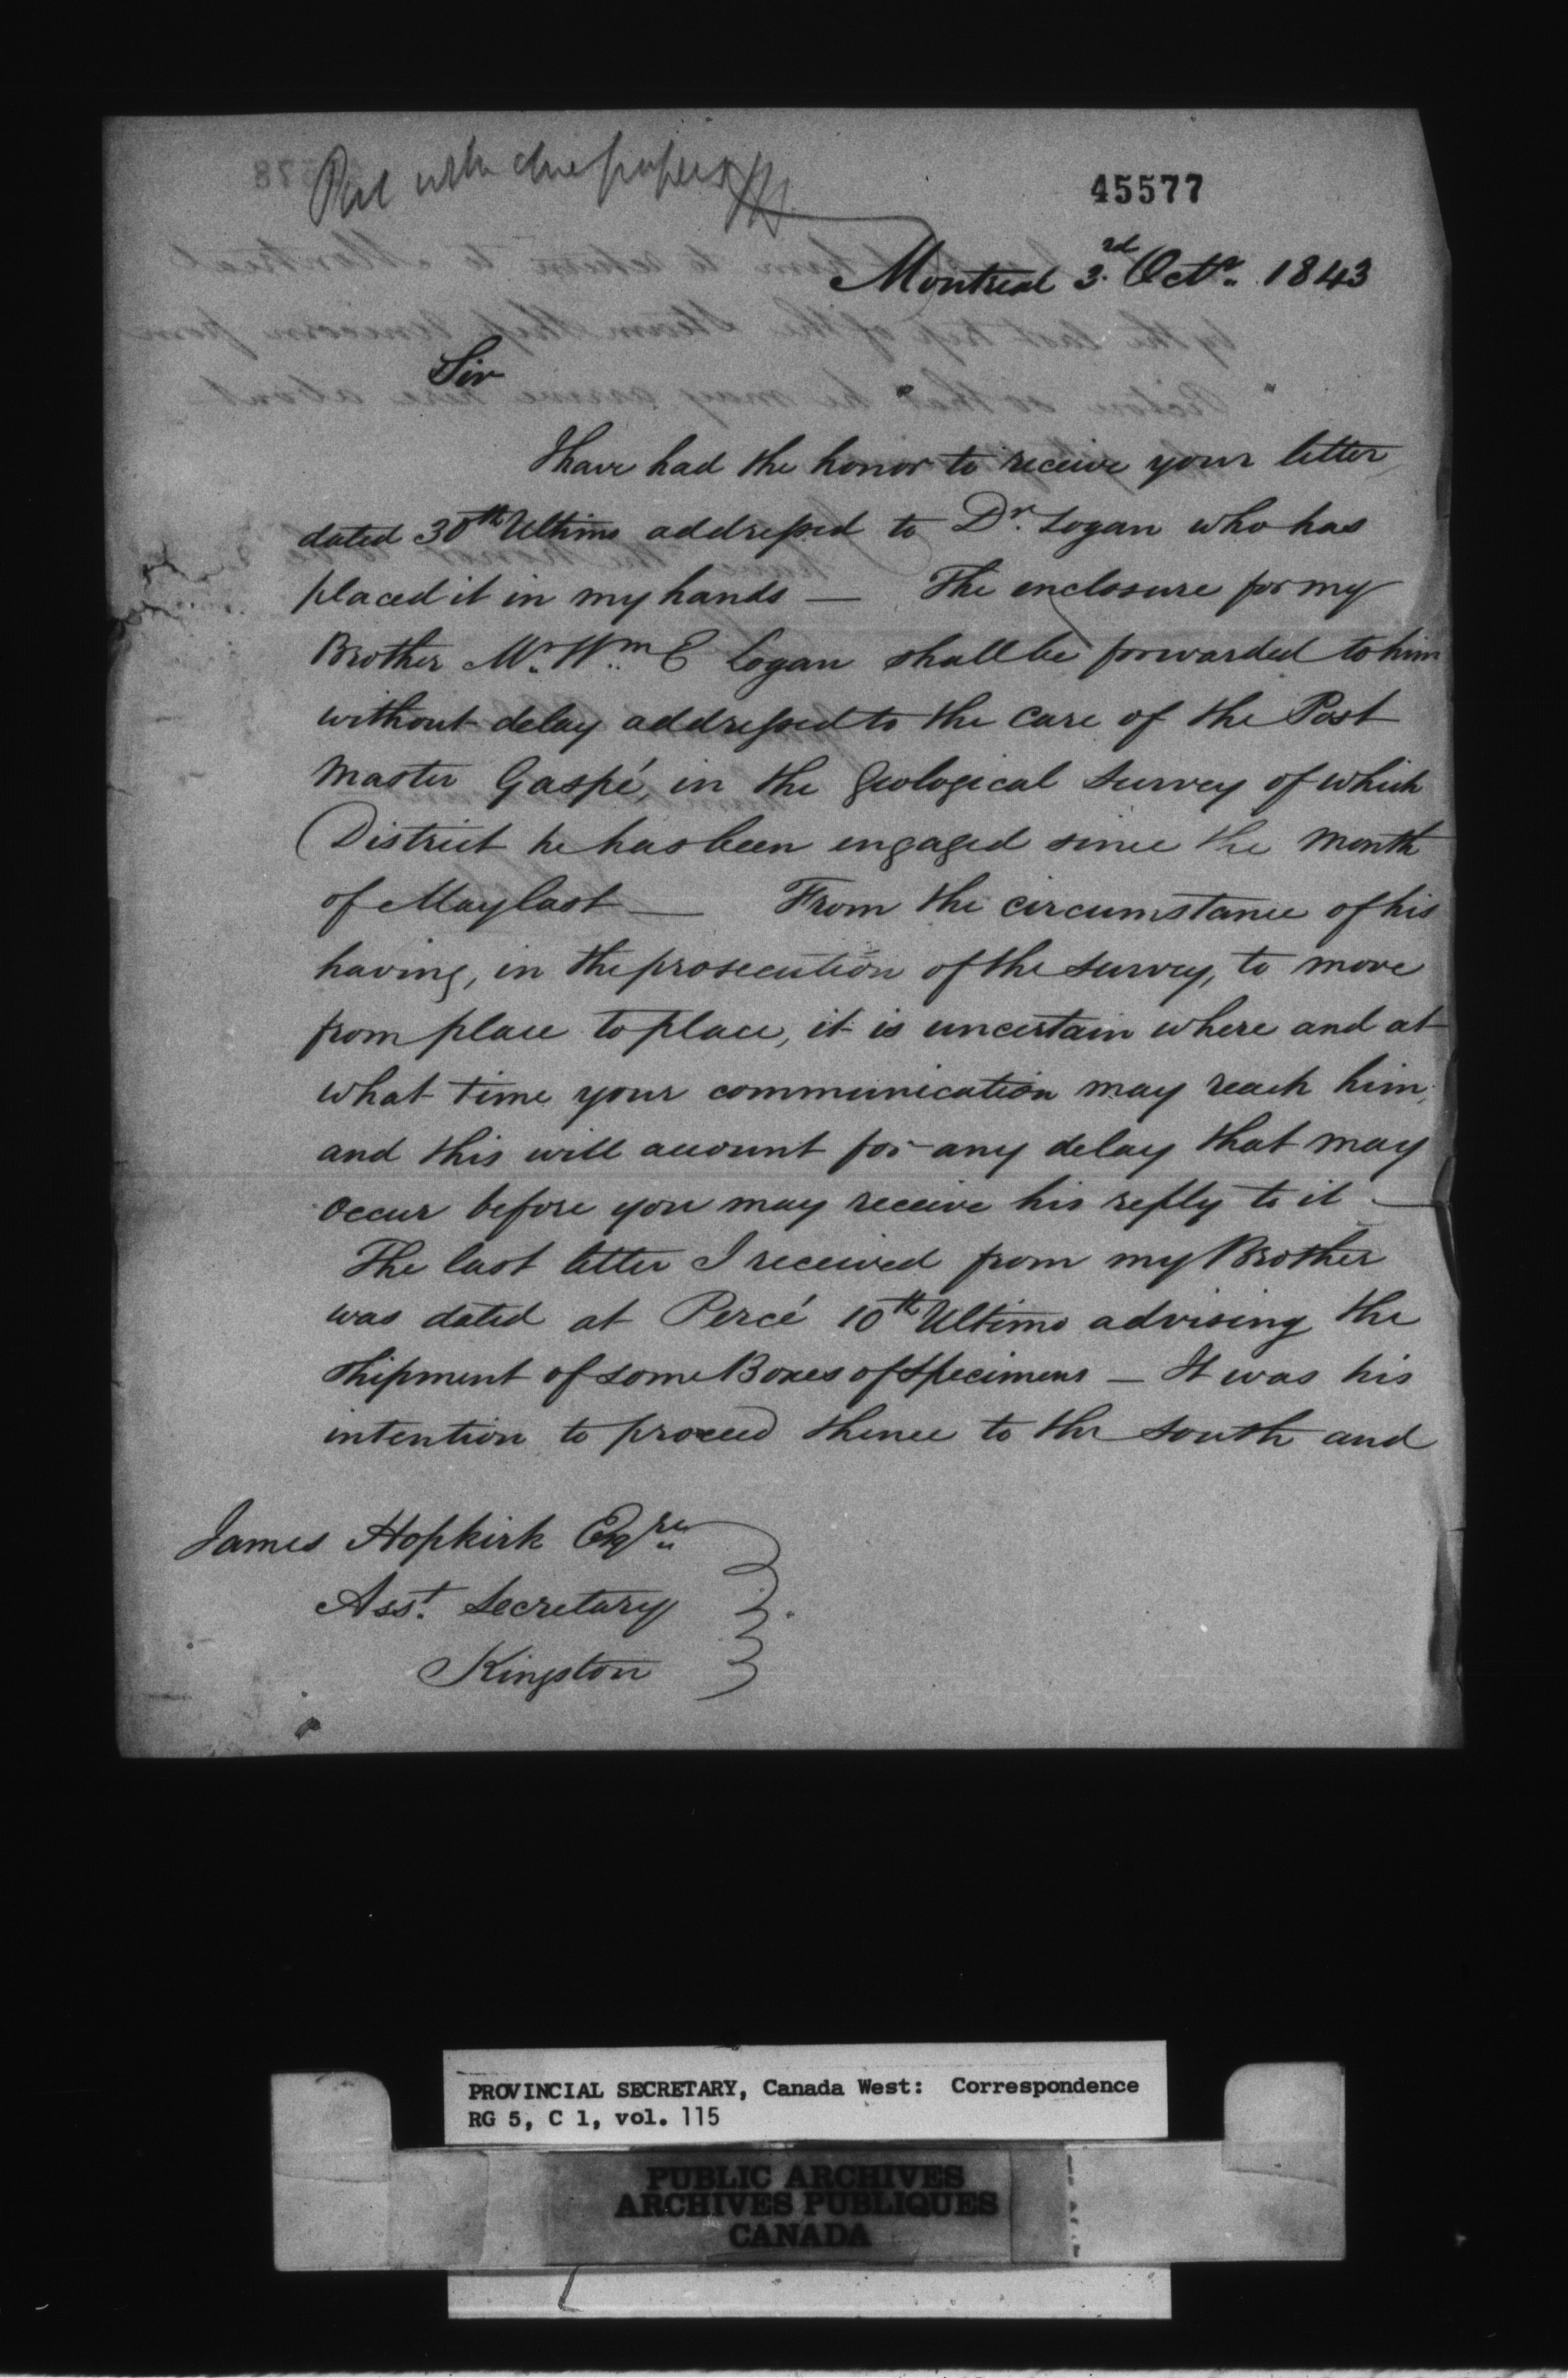 Put with due papers
45577
Montreal 3rd Octr. 1843
Sir
I have had the honor to receive your letter
dated 30th Ultimo addressed to Dr. Logan who has
placed it in my hands — The enclosure for my
Brother Mr. Wm. E Logan shall be forwarded to him
without delay addressed to the care of the Post
Master Gaspé, in the Geological Survey of which
District he has been engaged since the month
of May last — From the circumstance of his
having, in the prosecution of the survey, to move
from place to place, it is uncertain where and at
what time your communication may reach him,
and this will account for any delay that may
occur before you may receive his reply to it —
The last letter I received from my Brother
was dated at Percé 10th Ultimo advising the
shipment of some Boxes of Specimens — It was his
intention to proceed thence to the south and
James Hopkirk Esqre.
Asst. Secretary
Kingston
PROVINCIAL SECRETARY, Canada West: Correspondence
RG 5, C 1, vol. 115
PUBLIC ARCHIVES
ARCHIVES PUBLIQUES
CANADA